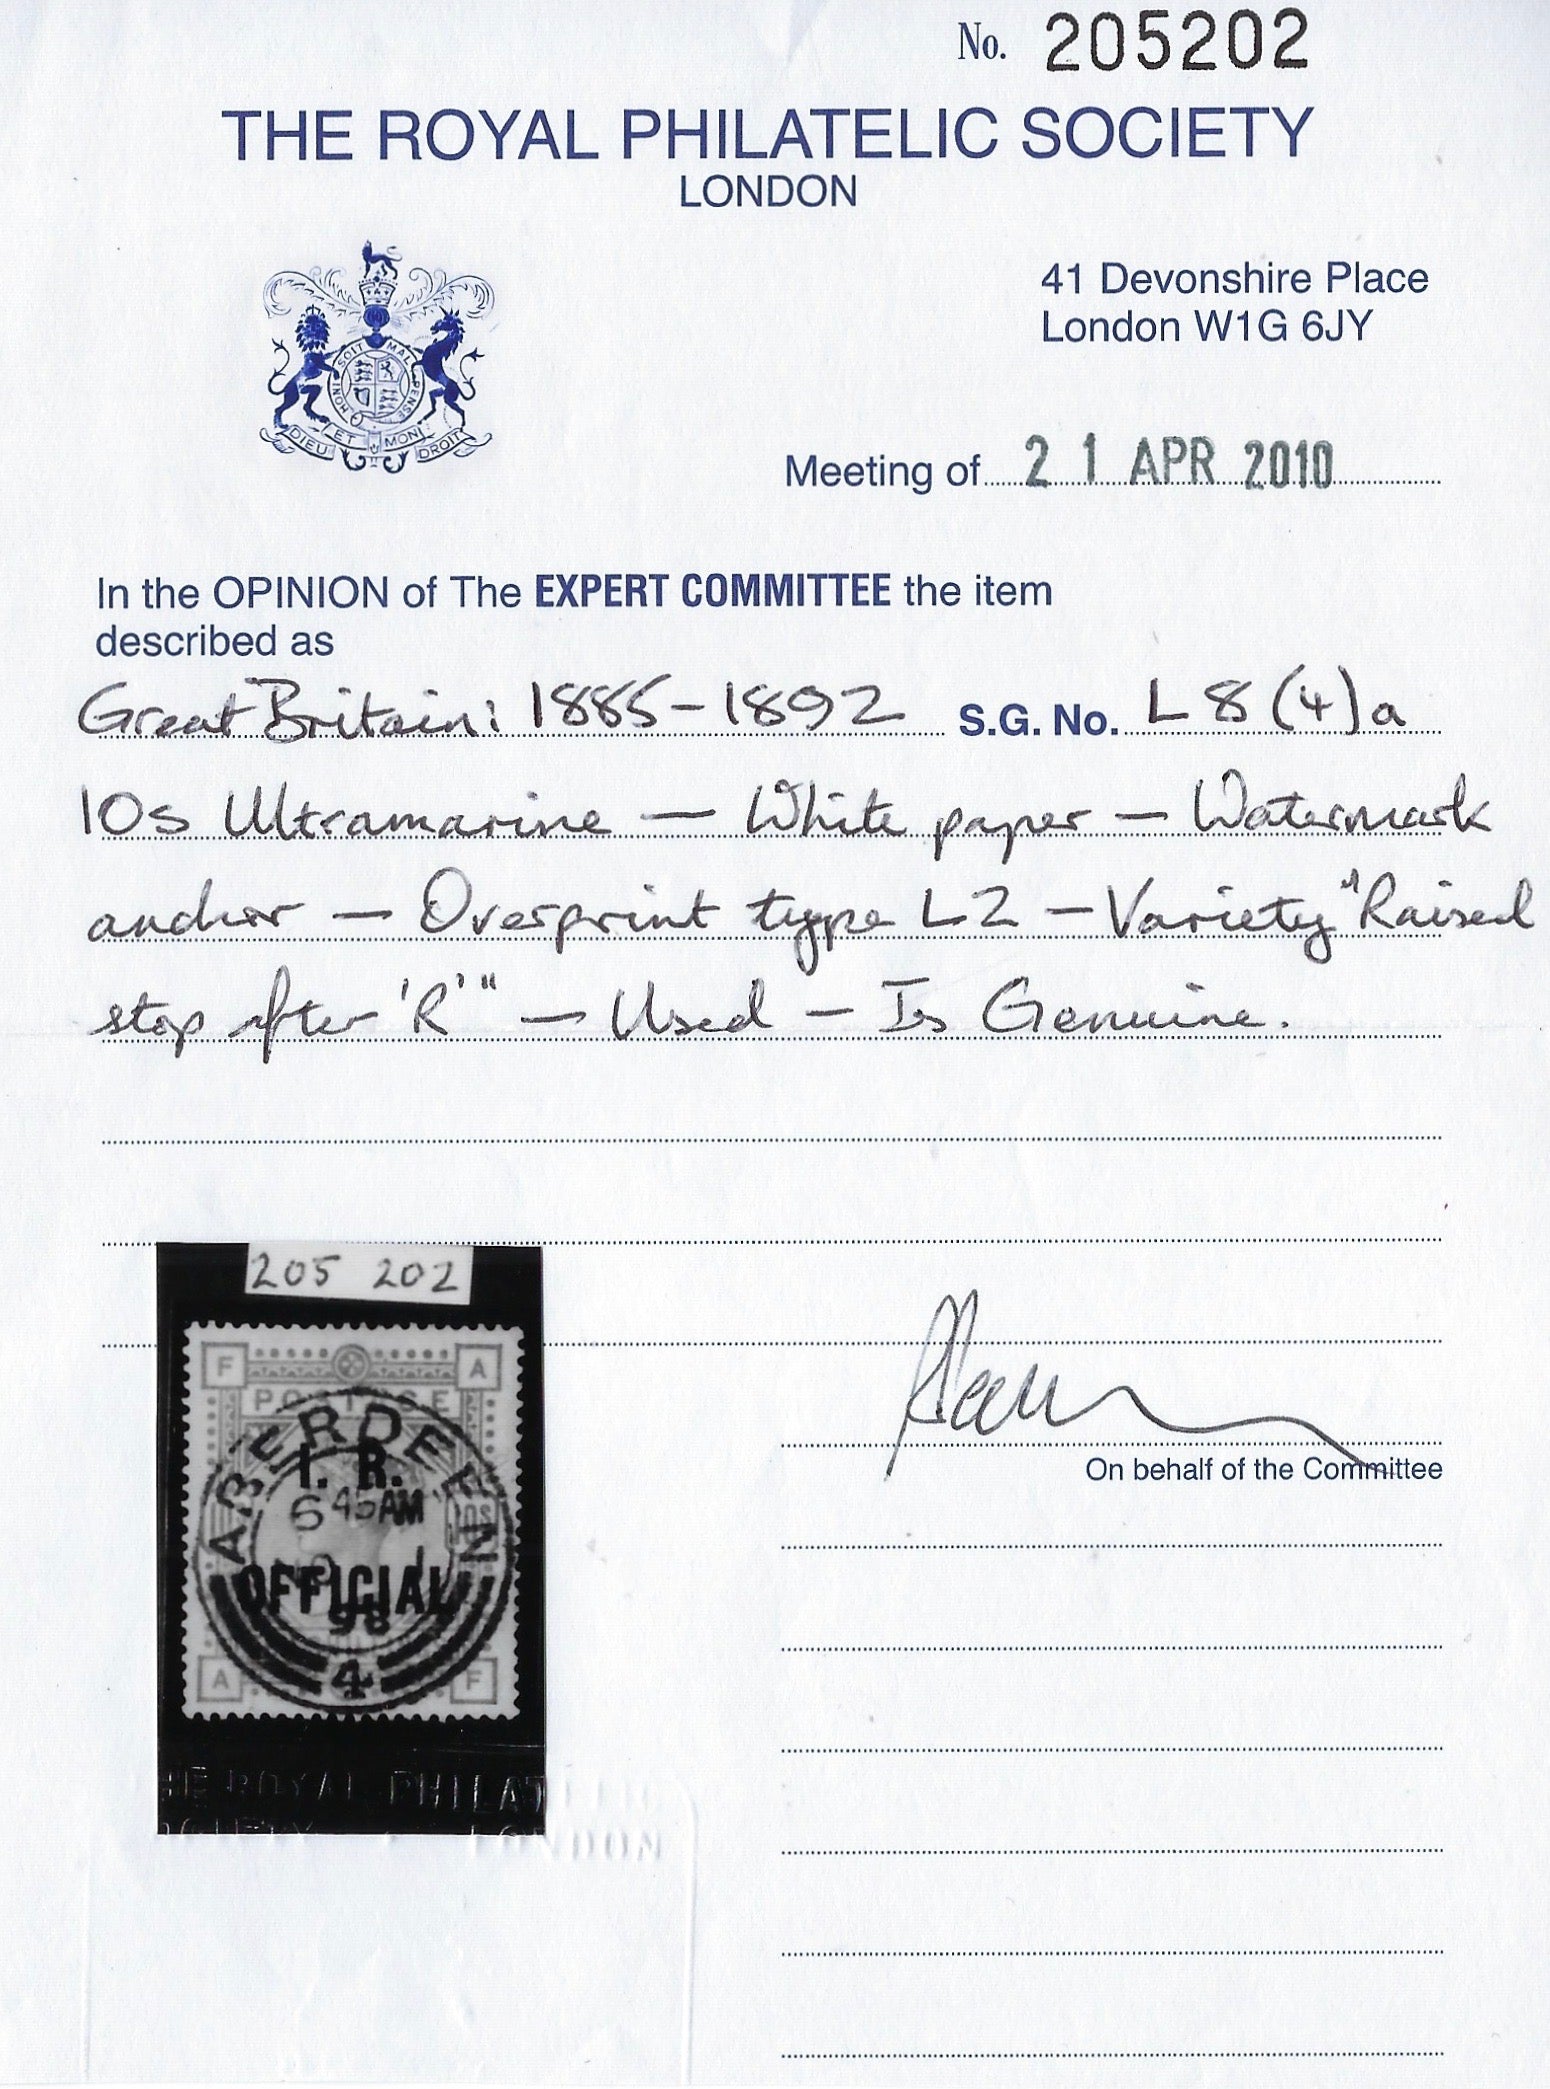 No. 205202
THE ROYAL PHILATELIC SOCIETY
LONDON
41 Devonshire Place
London W1G 6JY
HONI SOIT MAL PENSE
DIEU ET MON DROIT
Meeting of 21 APR 2010
In the OPINION of The EXPERT COMMITTEE the item
described as
Great Britain: 1885-1892 S.G. No. L8(4)a
10s Ultramarine — White paper — Watermark
anchor — Overprint type L2 — Variety "Raised
stop after 'R'" — Used — Is Genuine.
205 202
F A
POSTAGE
ABERDEEN
I. R.
6 45AM
10S
NO 1
OFFICIAL
98
4
A F
On behalf of the Committee
HE ROYAL PHILATELIC
SOCIETY LONDON